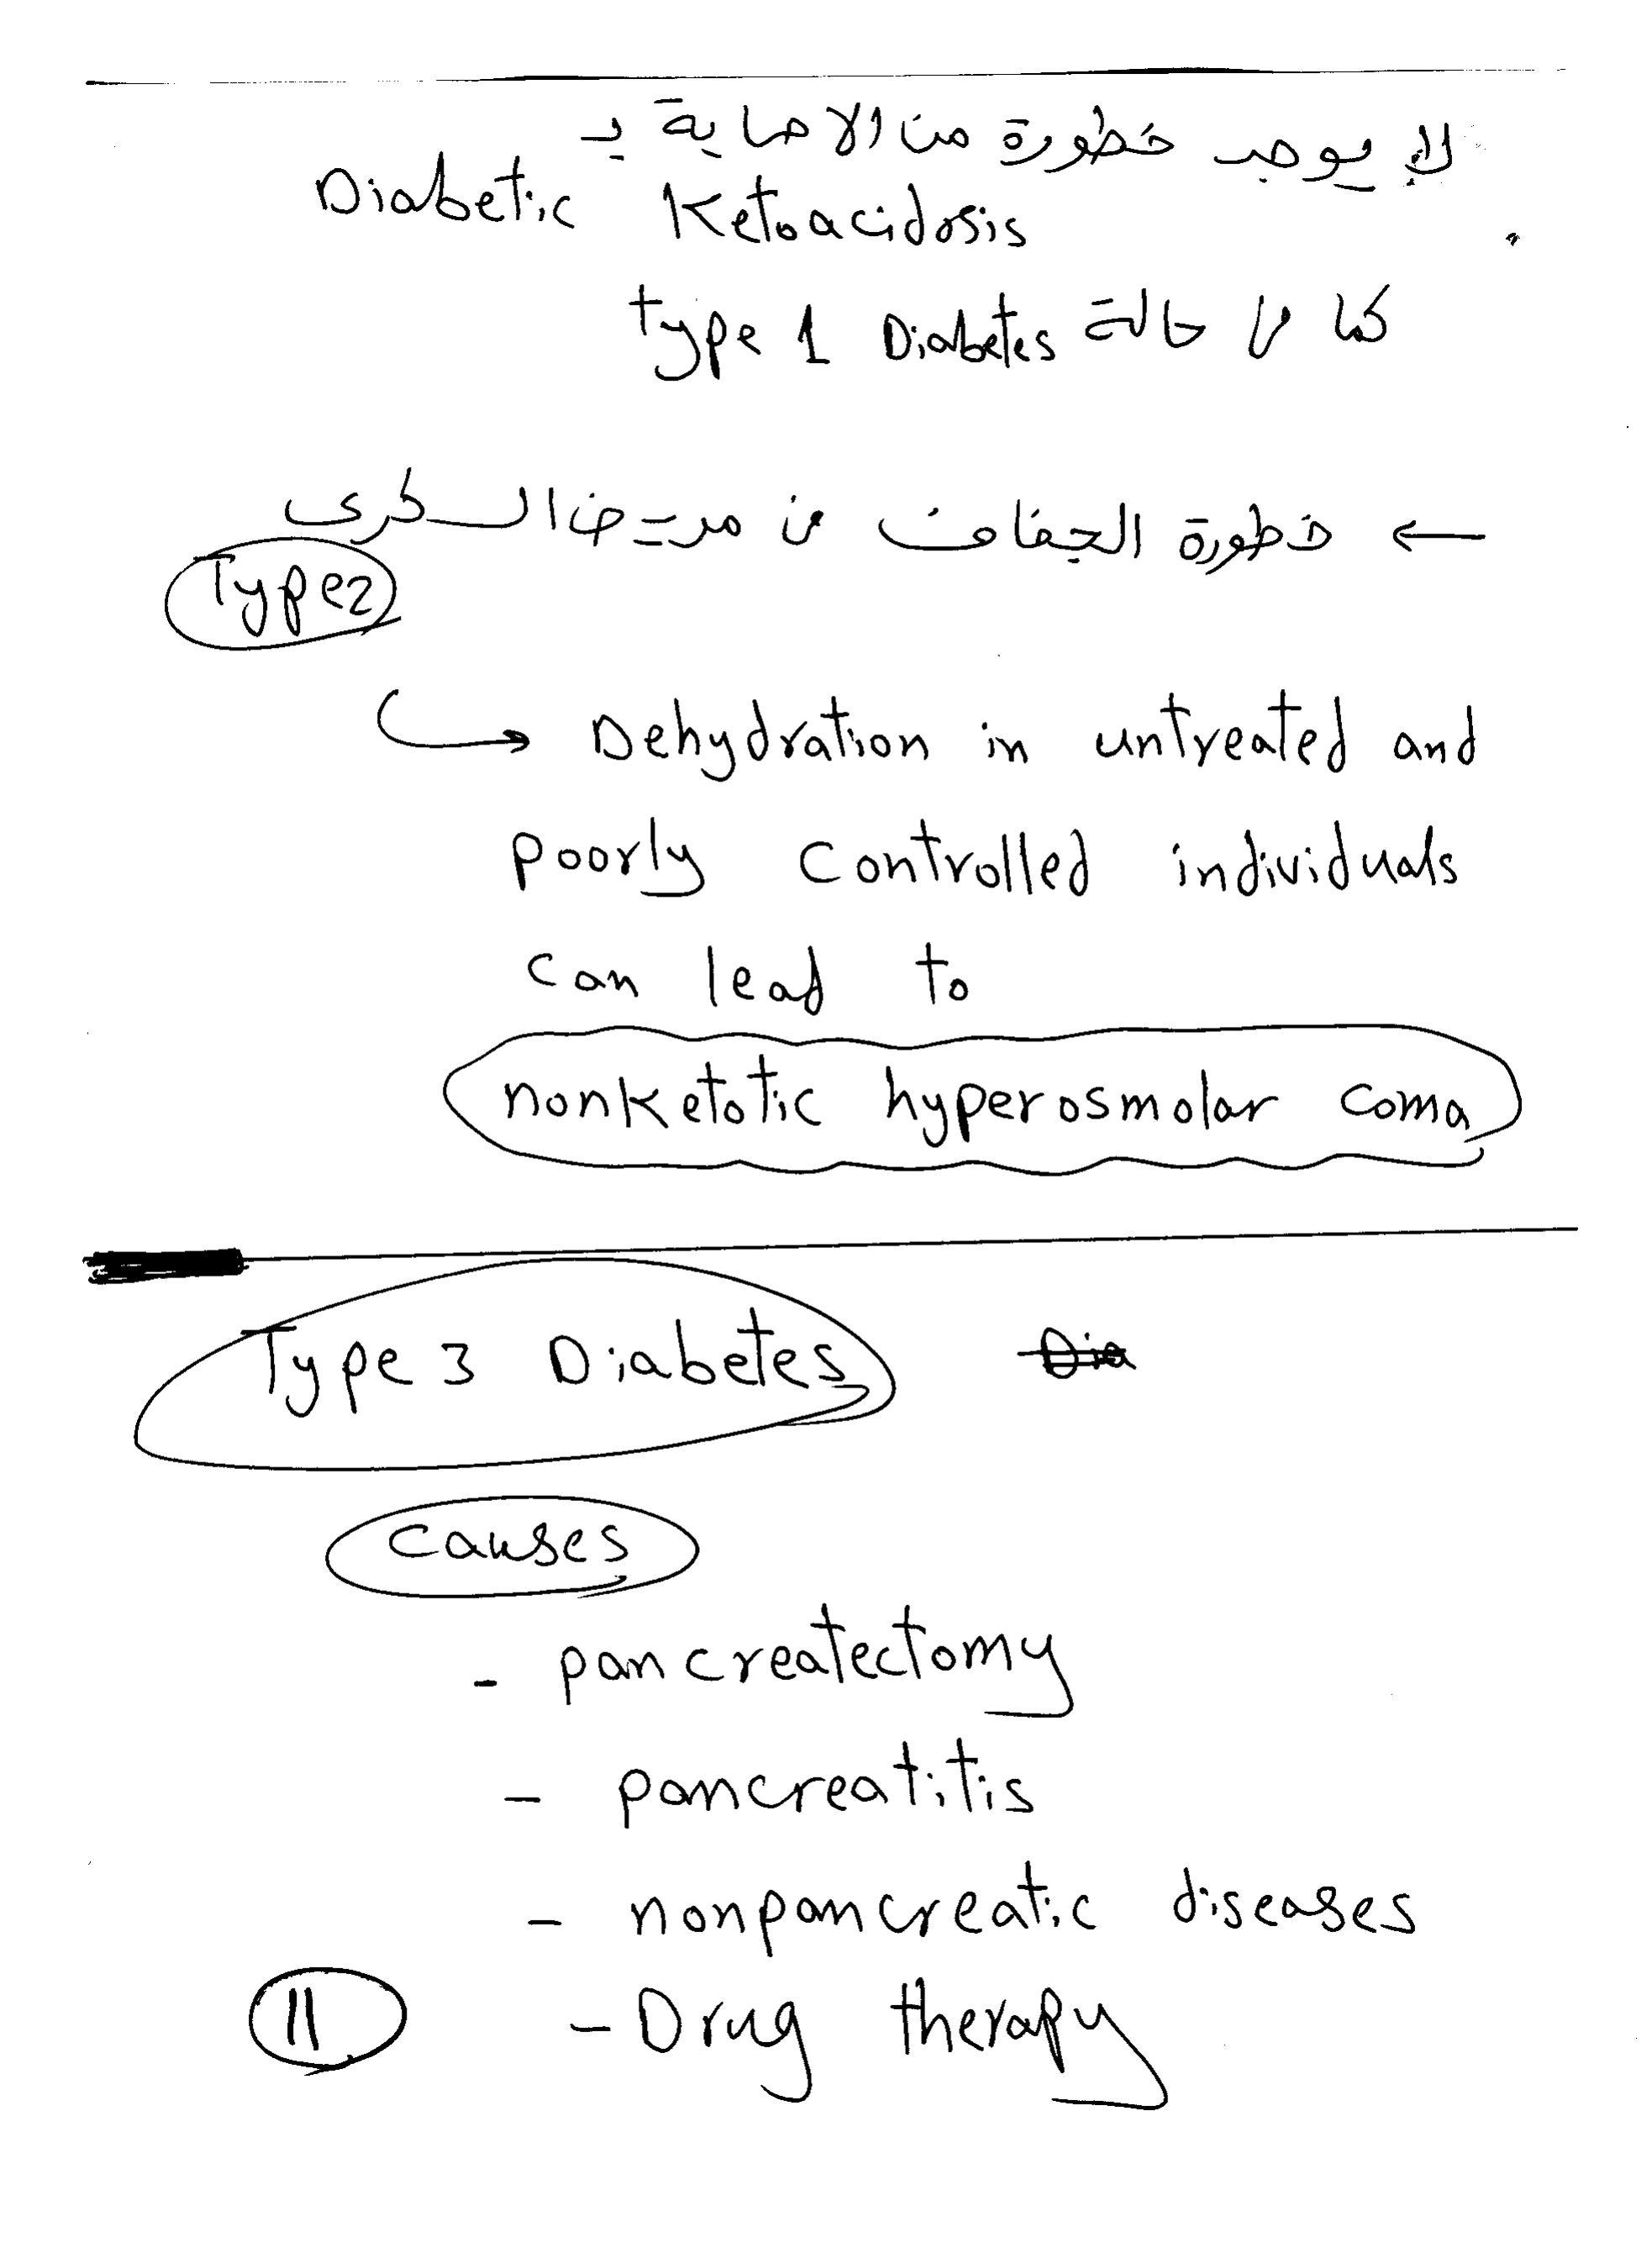 لا يوجد خطورة من الاصابة بـ
Diabetic Ketoacidosis
كما في حالة type 1 Diabetes
← خطورة الجفاف في مريض السكرى
Type2
Dehydration in untreated and
poorly controlled individuals
can lead to
nonketotic hyperosmolar coma
Type 3 Diabetes Dia
causes
- pancreatectomy
- pancreatitis
- nonpancreatic diseases
- Drug therapy
11